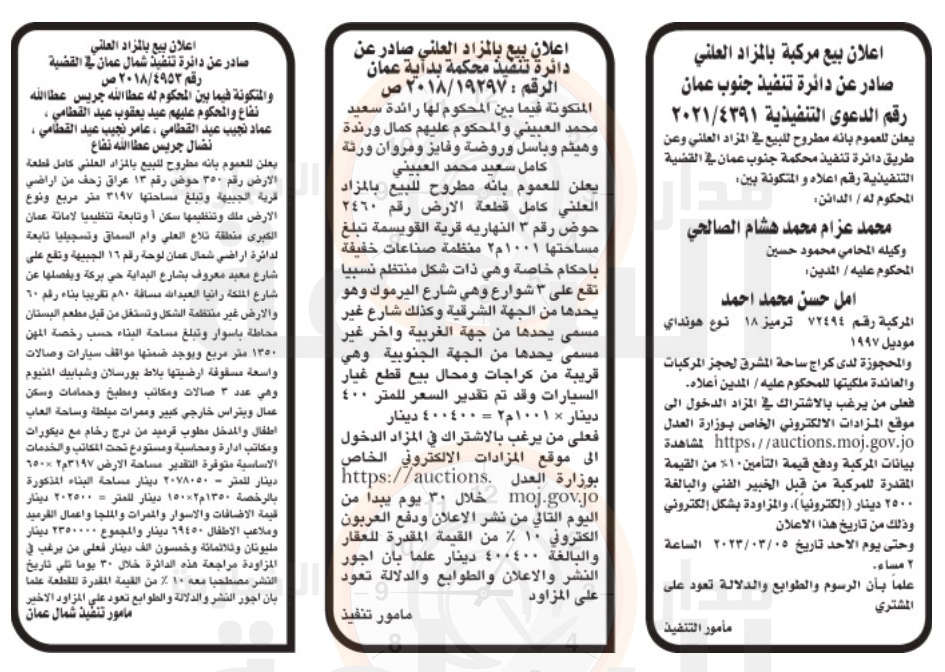 اعلان بيع مركبة بالمزاد العلني
صادر عن دائرة تنفيذ جنوب عمان
رقم الدعوى التنفيذية ٢٠٢١/٤٣٩١
يعلن للعموم بانه مطروح للبيع في المزاد العلني وعن
طريق دائرة تنفيذ محكمة جنوب عمان في القضية
التنفيذية رقم اعلاه و المتكونة بين:
المحكوم له / الدائن:
محمد عزام محمد هشام الصالحي
وكيله المحامي محمود حسين
المحكوم عليه / المدين:
امل حسن محمد احمد
المركبة رقم ٧٢٤٩٤ ترميز ١٨ نوع هونداي
موديل ١٩٩٧
والمحجوزة لدى كراج ساحة المشرق لحجز المركبات
والعائدة ملكيتها للمحكوم عليه / المدين أعلاه.
فعلى من يرغب بالاشتراك في المزاد الدخول الى
موقع المزادات الالكتروني الخاص بوزارة العدل
https://auctions.moj.gov.jo لمشاهدة
بيانات المركبة ودفع قيمة التأمين ١٠٪ من القيمة
المقدرة للمركبة من قبل الخبير الفني والبالغة
٢٥٠٠ دينار (إلكترونيا). والمزاودة بشكل إلكتروني
وذلك من تاريخ هذا الاعلان
وحتى يوم الاحد تاريخ ٢٠٢٣/٠٣/٠٥ الساعة
٢ مساء.
علماً بأن الرسوم والطوابع والدلالة تعود على
المشتري
مأمور التنفيذ
اعلان بيع بالمزاد العلني صادر عن
دائرة تنفيذ محكمة بداية عمان
الرقم : ٢٠١٨/١٩٢٩٧ ص
المتكونة فيما بين المحكوم لها رائدة سعيد
محمد العبيني والمحكوم عليهم كمال ورندة
وهيثم وباسل وروضة وفايز ومروان ورثة
كامل سعيد محمد العبيني
يعلن للعموم بانه مطروح للبيع بالمزاد
العلني كامل قطعة الارض رقم ٢٤٦٠
حوض رقم ٣ النهاريه قرية القويسمة تبلغ
مساحتها ١٠٠١م٢ منظمة صناعات خفيفة
باحكام خاصة وهي ذات شكل منتظم نسبيا
تقع على ٣ شوارع وهي شارع اليرموك وهو
يحدها من الجهة الشرقية وكذلك شارع غير
مسمى يحدها من جهة الغربية واخر غير
مسمى يحدها من الجهة الجنوبية وهي
قريبة من كراجات ومحال بيع قطع غيار
السيارات وقد تم تقدير السعر للمتر ٤٠٠
دينار × ١٠٠١م٢ = ٤٠٠٤٠٠ دينار
فعلى من يرغب بالاشتراك في المزاد الدخول
الى موقع المزادات الالكتروني الخاص
بوزارة العدل https://auctions.
moj.gov.jo خلال ٣٠ يوم يبدا من
اليوم التالي من نشر الاعلان ودفع العربون
الكتروني ١٠ ٪ من القيمة المقدرة للعقار
والبالغة ٤٠٠٤٠٠ دينار علما بان اجور
النشر والاعلان والطوابع والدلالة تعود
على المزاود
مامور تنفيذ
اعلان بيع بالمزاد العلني
صادر عن دائرة تنفيذ شمال عمان في القضية
رقم ٢٠١٨/٤٩٥٣ ص
والمتكونة فيما بين المحكوم له عطاالله جريس عطاالله
نفاع والمحكوم عليهم عيد يعقوب عيد القطامي ،
عماد نجيب عيد القطامي ، عامر نجيب عيد القطامي ،
نضال جريس عطاالله نفاع
يعلن للعموم بانه مطروح للبيع بالمزاد العلني كامل قطعة
الارض رقم ٣٥٠ حوض رقم ١٣ عراق زحف من اراضي
قرية الجبيهة وتبلغ مساحتها ٣١٩٧ متر مربع ونوع
الارض ملك وتنظيمها سكن أ وتابعة تنظيميا لامانة عمان
الكبرى منطقة تلاع العلي وام السماق وتسجيليا تابعة
لدائرة اراضي شمال عمان لوحة رقم ١٦ الجبيهة وتقع على
شارع معبد معروف بشارع البداية حي بركة ويفصلها عن
شارع الملكة رانيا العبدالله مسافة ٨٠م تقريبا بناء رقم ٦٠
والارض غير منتظمة الشكل وتستغل من قبل مطعم البستان
محاطة باسوار وتبلغ مساحة البناء حسب رخصة المهن
١٣٥٠ متر مربع ويوجد ضمنها مواقف سيارات وصالات
واسعة مسقوفة ارضيتها بلاط بورسلان وشبابيك المنيوم
وهي عدد ٣ صالات ومكاتب ومطبخ وحمامات وسكن
عمال وبتراس خارجي كبير وممرات مبلطة وساحة العاب
اطفال والمدخل مطوب قرميد من درج رخام مع ديكورات
ومكاتب ادارة ومحاسبة ومستودع تحت المكاتب والخدمات
الاساسية متوفرة التقدير مساحة الارض ٣١٩٧م٢ ×٦٥٠
دينار للمتر = ٢٠٧٨٠٥٠ دينار مساحة البناء المذكورة
بالرخصة ١٣٥٠م٢×١٥٠ دينار للمتر = ٢٠٢٥٠٠ دينار
قيمة الاضافات والاسوار والممرات والملجا واعمال القرميد
وملاعب الاطفال ٦٩٤٥٠ دينار والمجموع ٢٣٥٠٠٠٠ دينار
مليونان وثلاثمائة وخمسون الف دينار فعلى من يرغب في
المزاودة مراجعة هذه الدائرة خلال ٣٠ يوما تلي تاريخ
النشر مصطحبا معه ١٠ ٪ من القيمة المقدرة للقطعة علما
بان اجور النشر والدلالة والطوابع تعود على المزاود الاخير
مامور تنفيذ شمال عمان